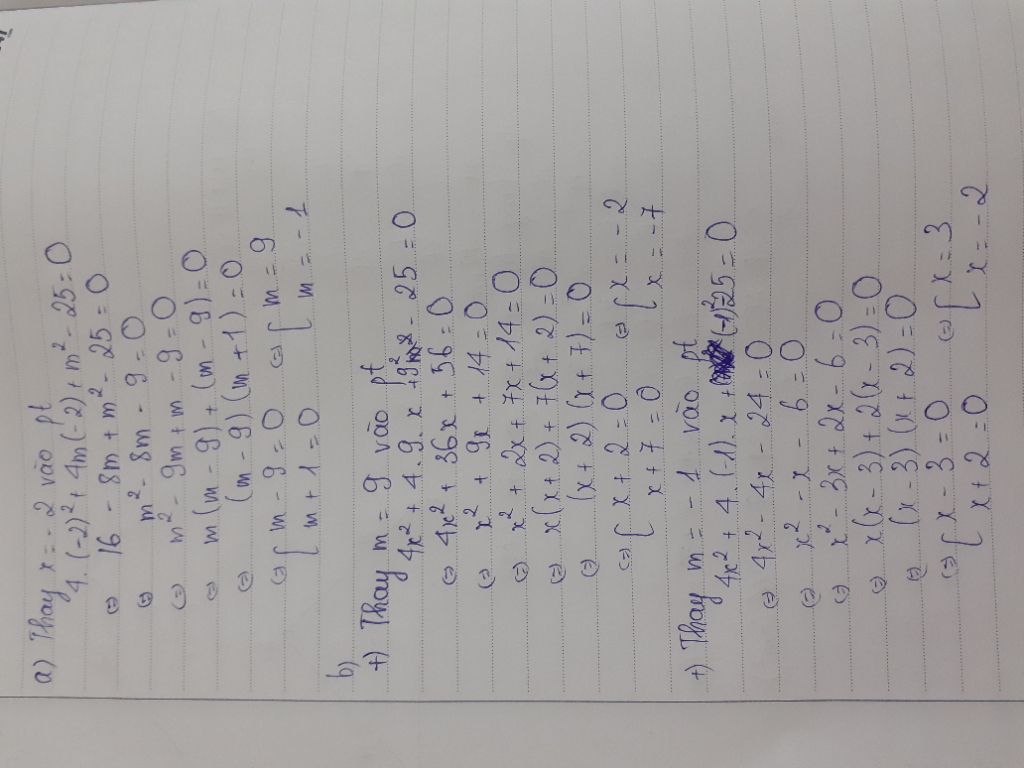 a) Thay x = - 2 vào pt
4. (-2)² + 4m(-2) + m² - 25 = 0
⇔ 16 - 8m + m² - 25 = 0
⇔ m² - 8m - 9 = 0
⇔ m² - 9m + m - 9 = 0
⇔ m(m - 9) + (m - 9) = 0
⇔ (m - 9)(m + 1) = 0
⇔ [ m - 9 = 0 ⇔ [ m = 9
m + 1 = 0 m = - 1
b)
+) Thay m = 9 vào pt
4x² + 4 . 9 . x + 9² - 25 = 0
⇔ 4x² + 36x + 56 = 0
⇔ x² + 9x + 14 = 0
⇔ x² + 2x + 7x + 14 = 0
⇔ x(x + 2) + 7(x + 2) = 0
⇔ (x + 2)(x + 7) = 0
⇔ [ x + 2 = 0 ⇔ [ x = - 2
x + 7 = 0 x = - 7
+) Thay m = - 1 vào pt
4x² + 4 . (-1). x + (-1)² - 25 = 0
⇔ 4x² - 4x - 24 = 0
⇔ x² - x - 6 = 0
⇔ x² - 3x + 2x - 6 = 0
⇔ x(x - 3) + 2(x - 3) = 0
⇔ (x - 3)(x + 2) = 0
⇔ [ x - 3 = 0 ⇔ [ x = 3
x + 2 = 0 x = - 2